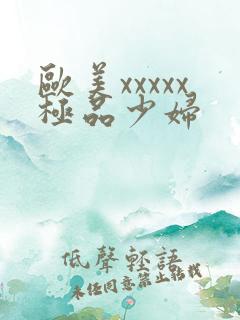 歐美xxxxx
極品少婦
低聲輕語
未经同意禁止转载